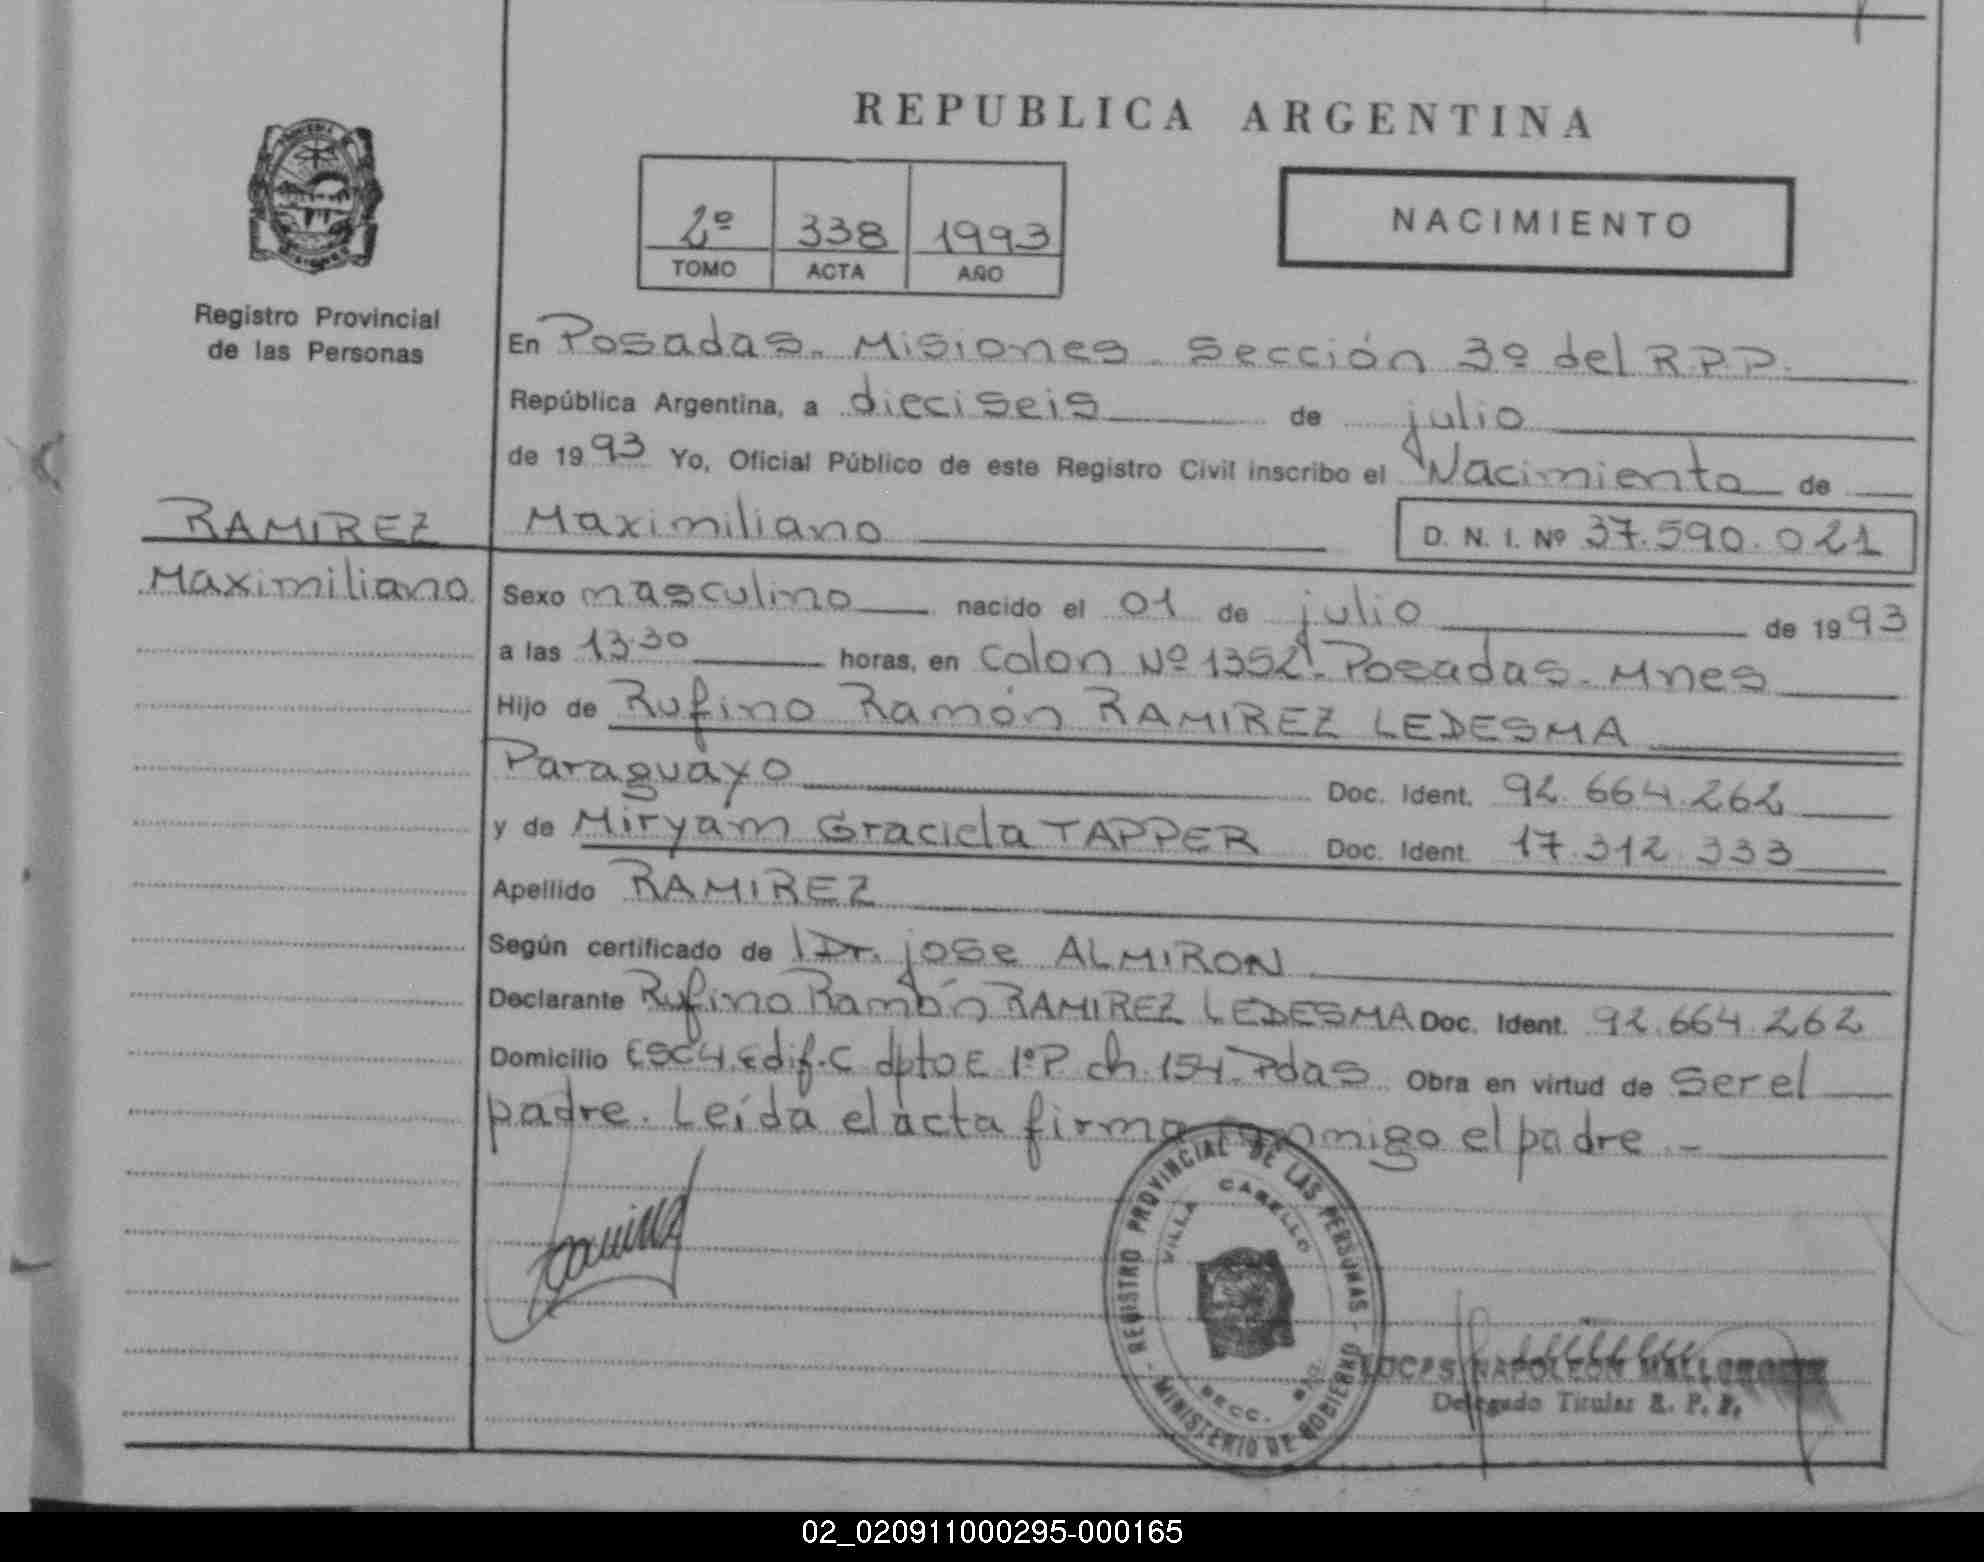 REPUBLICA ARGENTINA
2º 338 1993
TOMO ACTA AÑO
NACIMIENTO
Registro Provincial
de las Personas
En Posadas. Misiones. Sección 3º del R.P.P.
República Argentina, a dieciseis de julio
de 1993 Yo, Oficial Público de este Registro Civil inscribo el Nacimiento de
RAMIREZ
Maximiliano
Maximiliano
D. N. I. Nº 37.590.021
Sexo masculino nacido el 01 de julio de 1993
a las 13.30 horas, en Colon Nº 1352. Posadas. Mnes
Hijo de Rufino Ramón RAMIREZ LEDESMA
Paraguayo Doc. Ident. 92.664.262
y de Miryam Graciela TAPPER Doc. Ident. 17.312.333
Apellido RAMIREZ
Según certificado de Dr. jose ALMIRON
Declarante Rufino Ramón RAMIREZ LEDESMA Doc. Ident. 92.664.262
Domicilio Edif. C dpto E 1º P ch. 154. Pdas Obra en virtud de ser el
padre. Leída el acta firma conmigo el padre.-
REGISTRO PROVINCIAL DE LAS PERSONAS
VILLA CABELLO
SECC.
MINISTERIO DE GOBIERNO
NAPOLEON
Delegado Titular R. P. P.
02_020911000295-000165